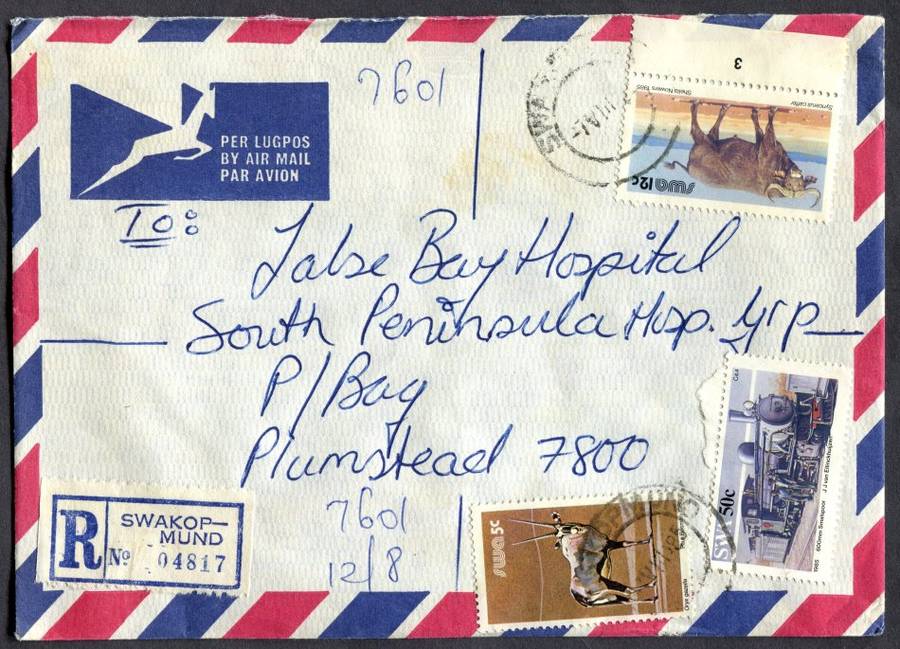 7601
PER LUGPOS
BY AIR MAIL
PAR AVION
3
Sheila Nowers 1985
Syncerus caffer
swa 12c
To:
False Bay Hospital
South Peninsula Hosp. Grp
P/Bag
Plumstead 7800
R
SWAKOP-
MUND
No 04817
7601
12/8
swa 5c
Oryx gazella
SWA 50c
1985 600mm Smalspoor